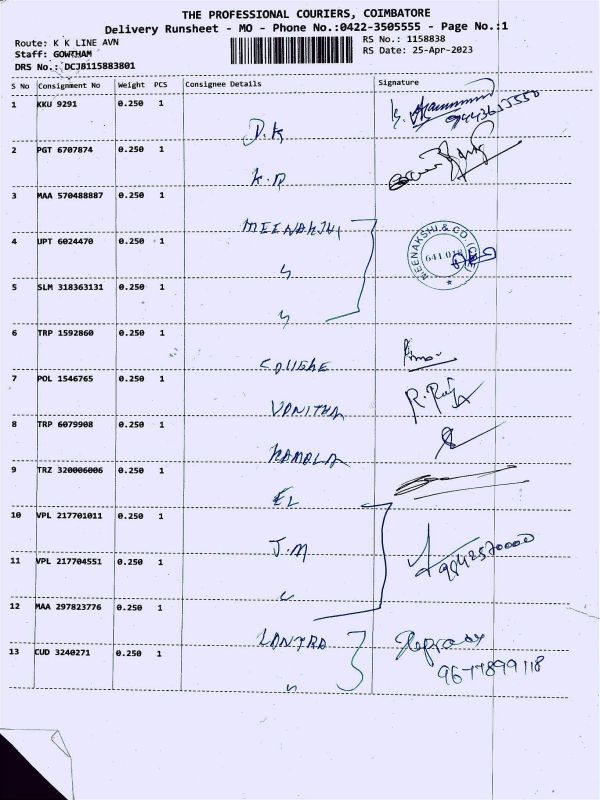 THE PROFESSIONAL COURIERS, COIMBATORE
Delivery Runsheet - MO - Phone No.:0422-3505555 - Page No.:1
Route: K K LINE AVN
RS No.: 1158838
Staff: GOWTHAM
RS Date: 25-Apr-2023
DRS No.: DCJ8115883801
S No Consignment No Weight PCS Consignee Details Signature
1 KKU 9291 0.250 1
D.K
2 PGT 6707874 0.250 1
K.D
3 MAA 570488887 0.250 1
MEENAKSHI
MEENAKSHI & CO
4 UPT 6024470 0.250 1
641 018
5 SLM 318363131 0.250 1
6 TRP 1592860 0.250 1
7 POL 1546765 0.250 1
VANITHA
R. Raj
8 TRP 6079908 0.250 1
KAMALA
9 TRZ 320006006 0.250 1
EL
10 VPL 217701011 0.250 1
J.M
9842570000
11 VPL 217704551 0.250 1
12 MAA 297823776 0.250 1
13 CUD 3240271 0.250 1
9677899118